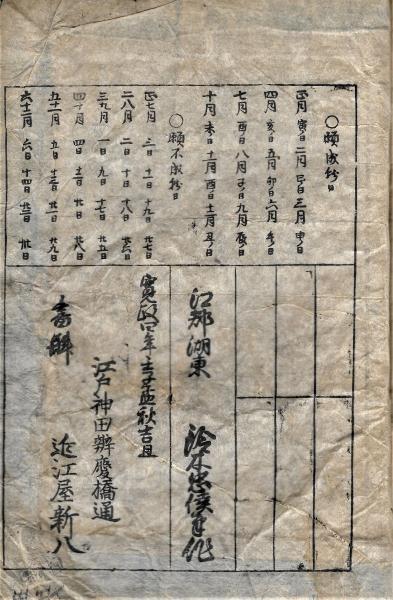 ○願成就日
正月 寅ノ日 二月 巳ノ日 三月 申ノ日
四月 亥ノ日 五月 卯ノ日 六月 午ノ日
七月 酉ノ日 八月 子ノ日 九月 辰ノ日
十月 未ノ日 十一月 酉ノ日 十二月 丑ノ日
○願不成就日
正七月 三日 十一日 十九日 廿七日
二八月 二日 十日 十八日 廿六日
三九月 一日 九日 十七日 廿五日
四十月 四日 十二日 廿日 廿八日
五十一月 五日 十三日 廿一日 廿九日
六十二月 六日 十四日 廿二日 卅日
江都湖東
寛政四年壬子孟秋吉旦
江戸神田辨慶橋通
書肆 近江屋新八